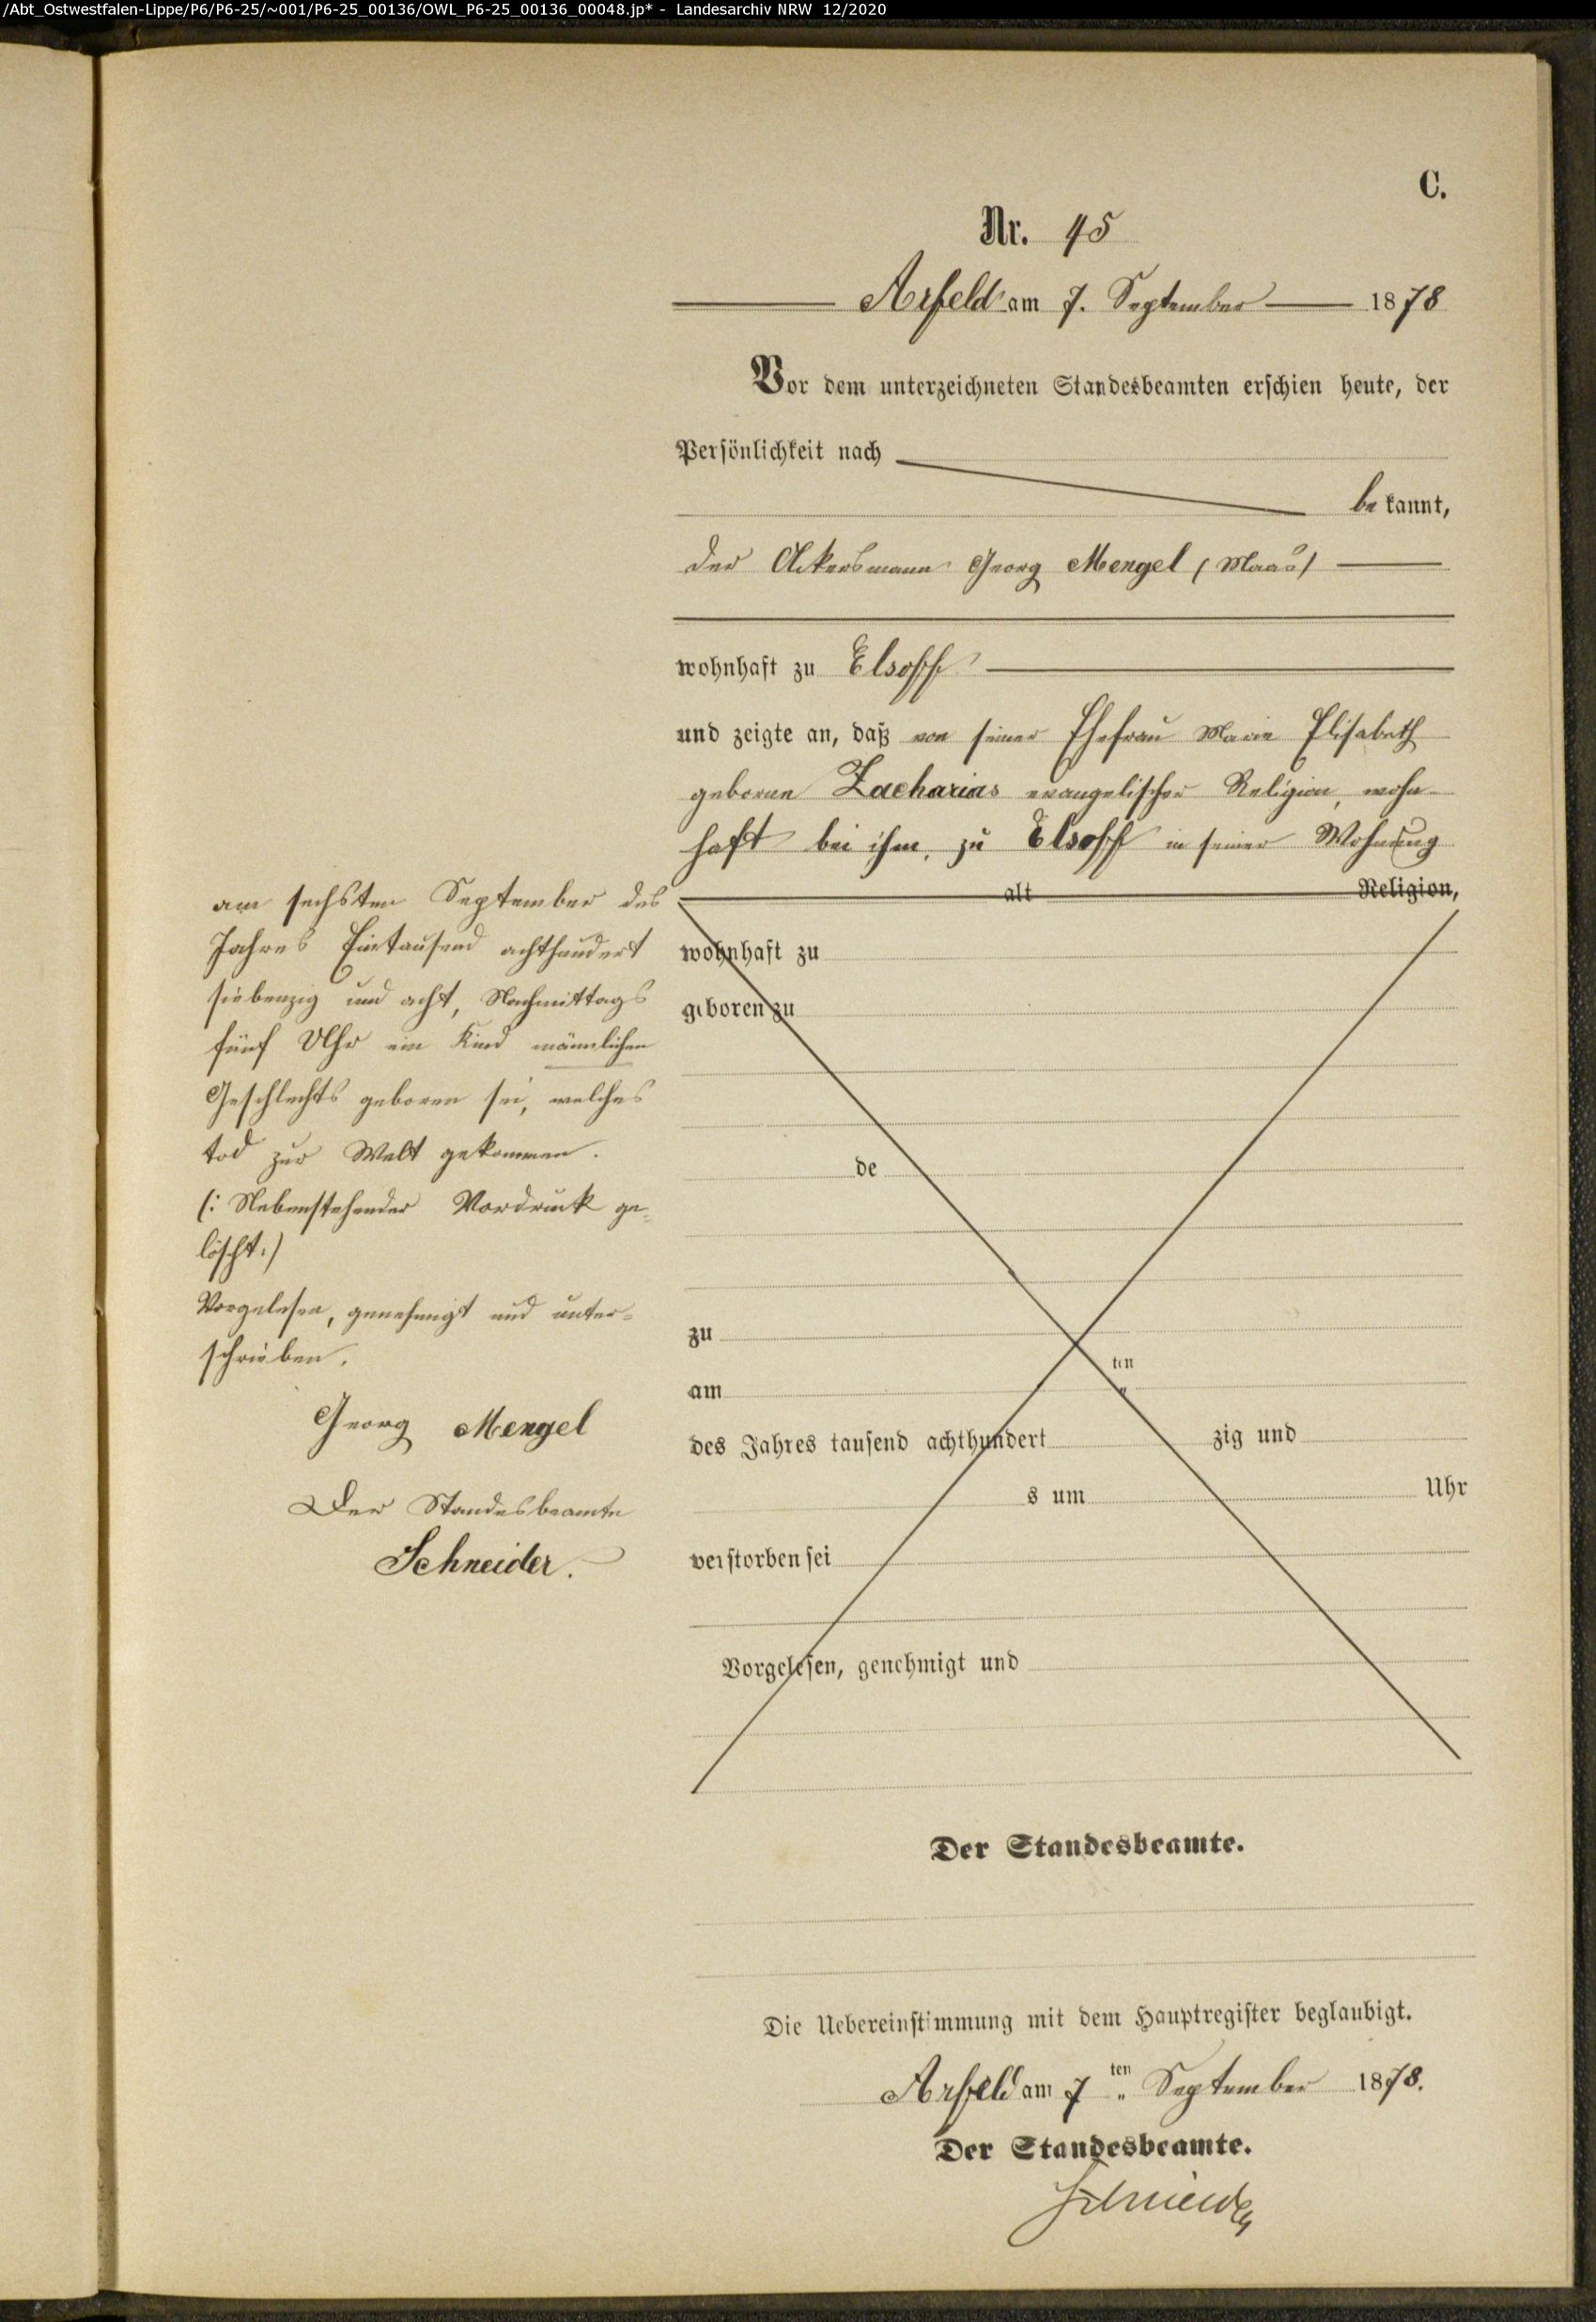 /Abt_Ostwestfalen-Lippe/P6/P6-25/~001/P6-25_00136/OWL_P6-25_00136_00048.jp* - Landesarchiv NRW 12/2020
C.
Nr. 45
Arfeld am 7. September 1878
Vor dem unterzeichneten Standesbeamten erschien heute, der
Persönlichkeit nach
be kannt,
der Ackersmann Georg Mengel (Maas)
wohnhaft zu Elsoff
und zeigte an, daß von seiner Ehefrau Marie Elisabeth
geborne Zacharias evangelischer Religion, wohn-
haft bei ihm, zu Elsoff in seiner Wohnung
alt Religion,
wohnhaft zu
geboren zu
de
zu
ten
am "
des Jahres tausend achthundert zig und
s um Uhr
verstorben sei
Vorgelesen, genehmigt und
am sechsten September des
Jahres Eintausend achthundert
siebenzig und acht, Nachmittags
fünf Uhr ein Kind männlichen
Geschlechts geboren sei, welches
tod zur Welt gekommen.
(: Nebenstehender Vordruck ge-
löscht:)
Vorgelesen, genehmigt und unter-
schrieben.
Georg Mengel
Der Standesbeamte
Schneider.
Der Standesbeamte.
Die Uebereinstimmung mit dem Hauptregister beglaubigt.
Arfeld am 7 ten September 1878.
Der Standesbeamte.
Schneider